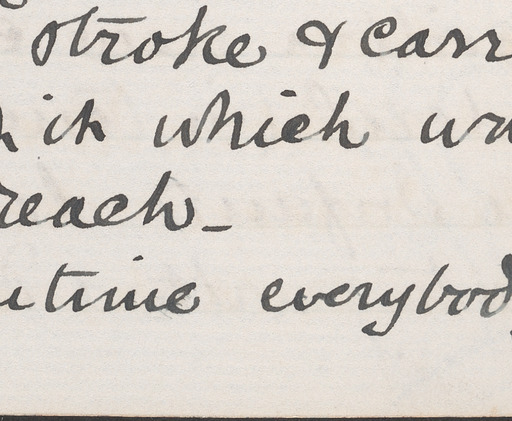 stroke & carr
h it which wa
reach_
ntime everybody